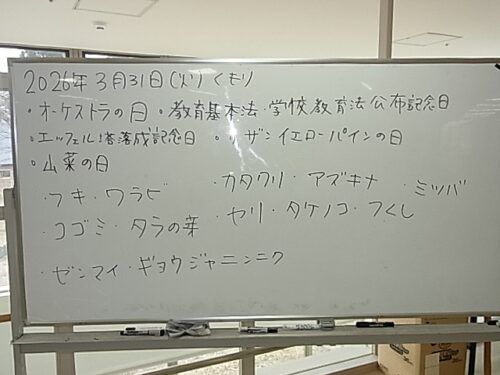 2026年3月31日(火)くもり
・オーケストラの日・教育基本法・学校教育法公布記念日
・エッフェル塔落成記念日・リザンイエローパインの日
・山菜の日
・フキ・ワラビ
・カタクリ・アズキナ・ミツバ
・コゴミ・タラの芽
・セリ・タケノコ・つくし
・ゼンマイ・ギョウジャニンニク